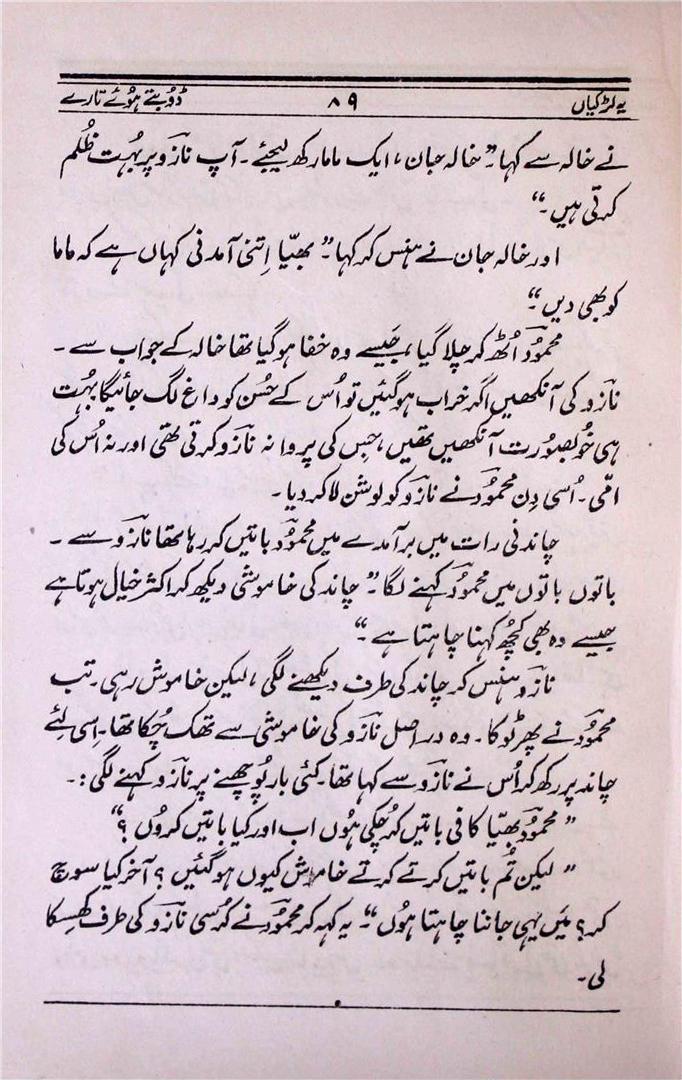 یہ لڑکیاں ۸۹ ڈوبتے ہوئے تارے
نے خالہ سے کہا۔" خالہ جان، ایک ماما رکھ لیجئے۔ آپ نازؔو پر بہُت ظُلم
کرتی ہیں۔"
اور خالہ جان نے ہنس کر کہا" بھیّا اِتنی آمدنی کہاں ہے کہ ماما
کو بھی دیں۔"
محموؔد اُٹھ کر چلا گیا، جَیسے وہ خفا ہو گیا تھا خالہ کے جواب سے۔
نازؔو کی آنکھیں اگر خراب ہو گئیں تو اُس کے حُسن کو داغ لگ جائیگا بہُت
ہی خُوبصوُرت آنکھیں تھیں، جِس کی پروا نہ نازؔو کرتی تھی اور نہ اُس کی
امّی۔ اُسی دِن محموؔد نے نازؔو کو لوشن لا کر دیا۔
چاندنی رات میں برآمدے میں محموؔد باتیں کر رہا تھا نازؔو سے۔
باتوں باتوں میں محموؔد کہنے لگا" چاند کی خاموشی دیکھ کر اکثر خیال ہوتا ہے
جیسے وہ بھی کچُھ کہنا چاہتا ہے۔"
نازؔو ہنس کر چاند کی طرف دیکھنے لگی، لیکن خاموش رہی۔ تب
محموؔد نے پھر ٹوکا۔ وہ دراصل نازؔو کی خاموشی سے تھک چُکا تھا۔ اِسی لئے
چاند پر رکھ کر اُس نے نازؔو سے کہا تھا۔ کئی بار پُوچھنے پر نازؔو کہنے لگی:۔
" محموؔد بھیّا کافی باتیں کر چُکی ہُوں اب اور کیا باتیں کروُں؟"
" لیکن تُم باتیں کرتے کرتے خاموش کیوں ہو گئیں؟ آخر کیا سوچ
کر؟ مَیں یہی جاننا چاہتا ہُوں"۔ یہ کہہ کر محموؔد نے کُرسی نازؔو کی طرف کھِسکا
لی۔